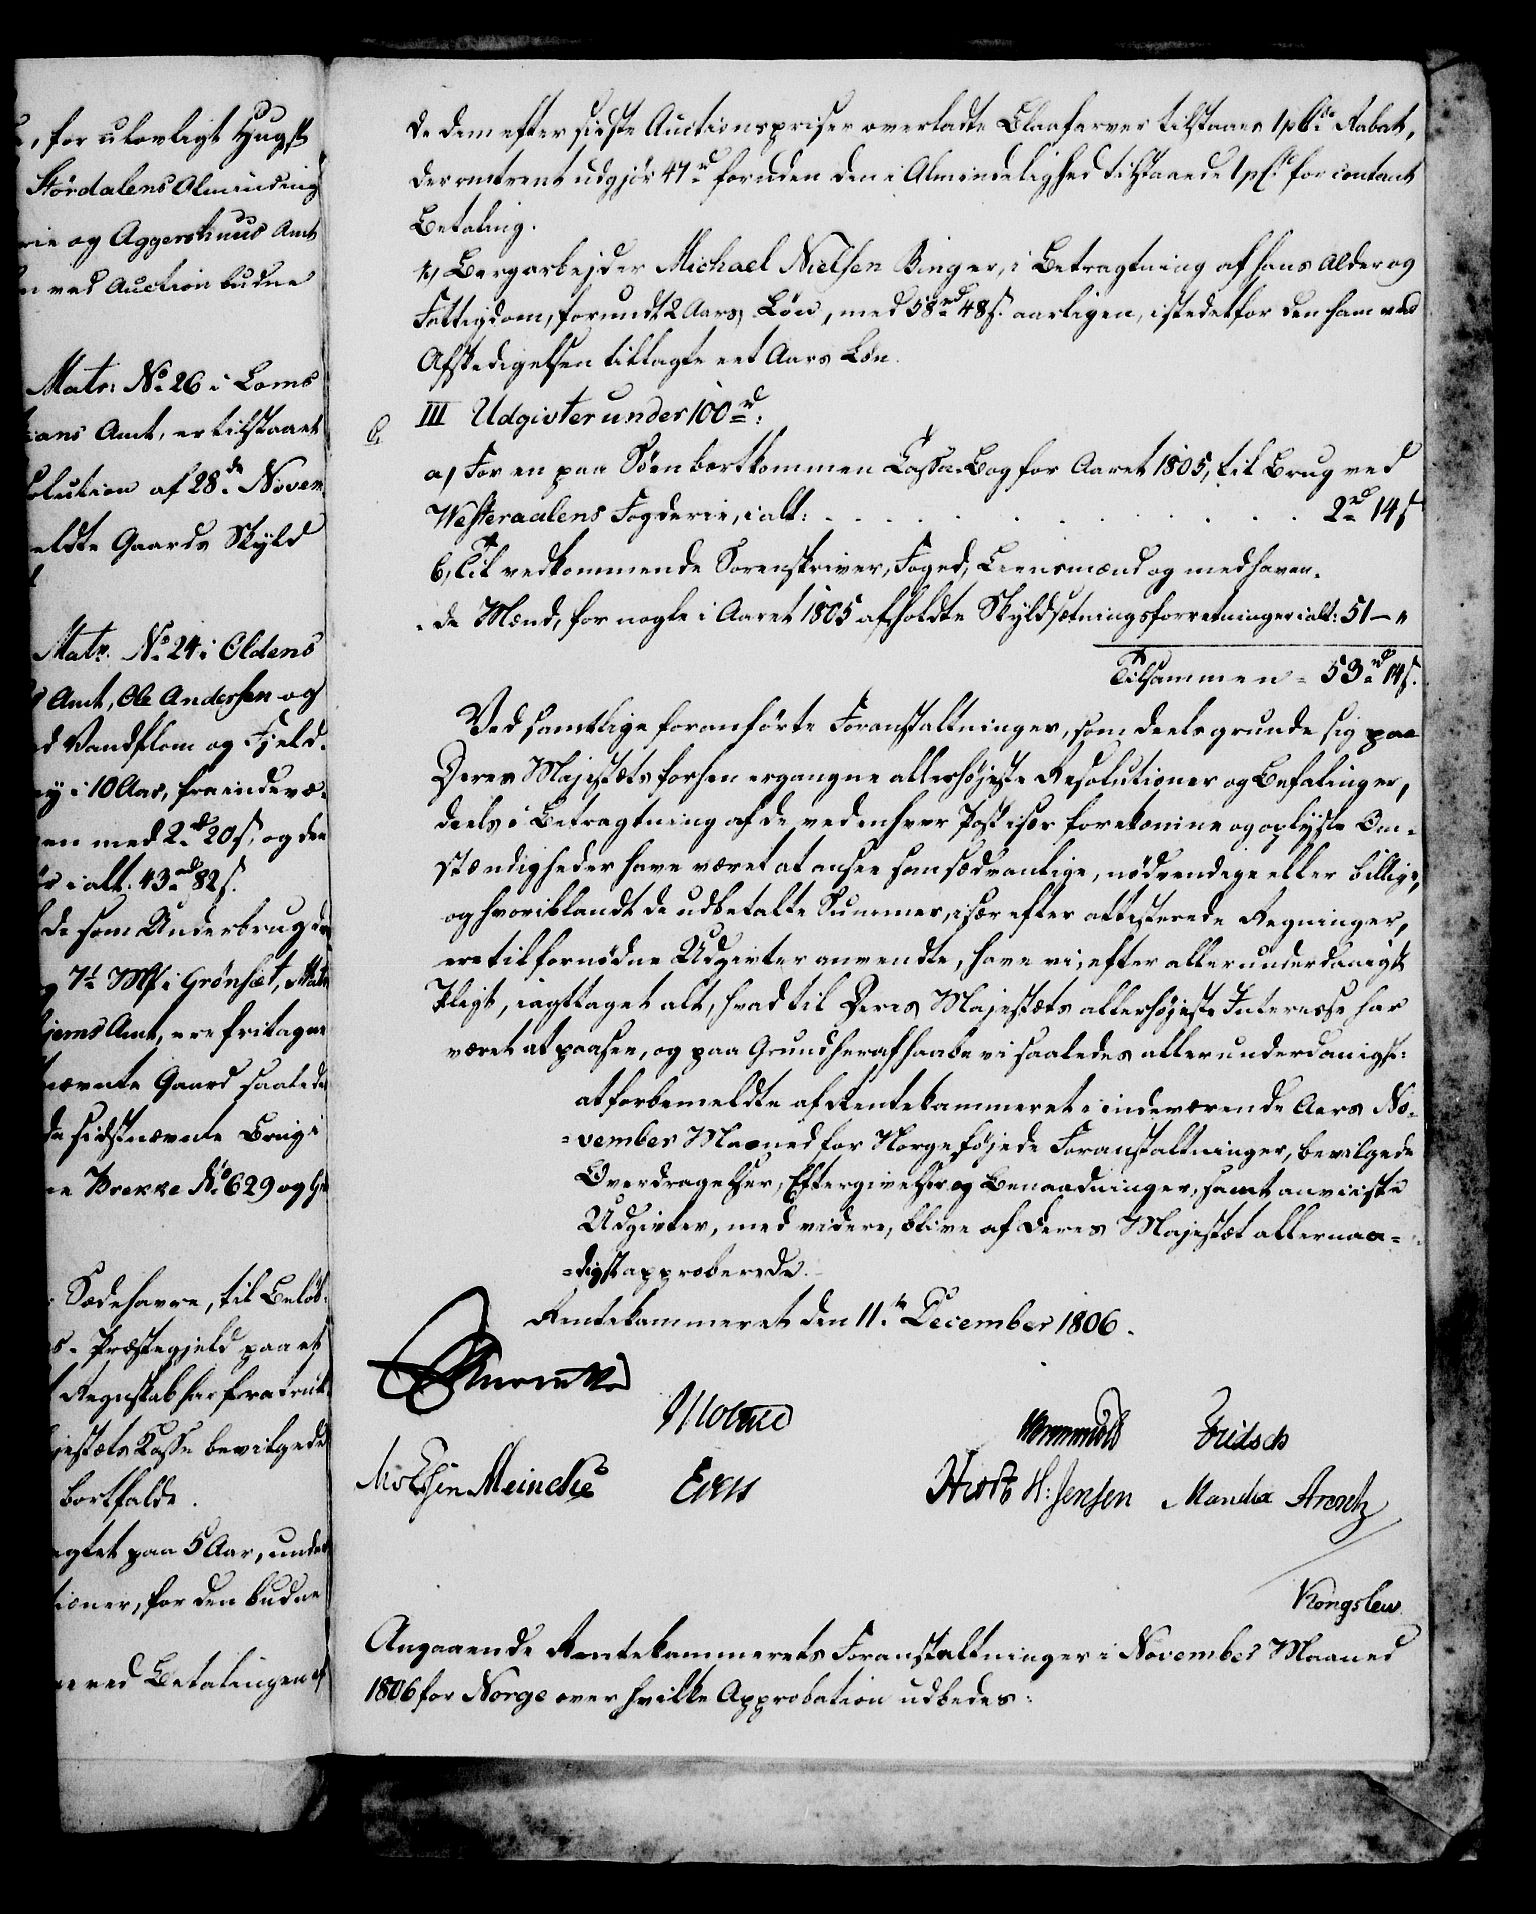 , for ulovligt Hugst
Stördalens Alminding
rie og Aggershuus Amt
n ved Auction budne
Matr: No 26 i Loms
ians Amt, er tilstaaet
olution af 28de Novem
eldte Gaards Skyld
Matr. No 24 i Oldens
Amt, Ole Andersen og
d Vandflom og Fjeld-
ey i 10 Aar, fra indevæ-
en med 2rd 20 s, og den
i alt. 43rd 82 s.
de som Underbrug
7½ Mk i Grönset, Matr
jems Amt, ere fritagne
nævnte Gaard saalede
de sidstnævnte Brug i
ne Brekke No 629 og
Sædehavre, til Belöb
s- Præstegjeld paa et
Regnskab har fratruk
jestæts Kasse bevilgede
bortfalde.
gtet paa 5 Aar, under
tioner, for den budne
ved Betalingen af
de dem efter sidste Auctionspriser overladte Blaafarver tilstaaes 1 pCt Rabat,
der omtrent udgjör 47rd foruden den i Almindelighed tilstaaede 1 pCt for contant
Betaling.
Bergarbejder Michael Nielsen Binger, i Betragtning af hans Alder og
Fattigdom, forundt 2 Aars Lön, med 58rd 48 s. aarligen, istedetfor den ham ved
Afskedigelsen tillagte eet Aars Lön.
III Udgivter under 100rd:
a) For en paa Söen bortkommen Cassa-Bog for Aaret 1805, til Brug ved
Westeraalens Fogderie, ialt: . . . . . . . . . . . 2rd 14 s
b, Til vedkommende Sorenskriver, Foged, Leensmænd og medhaven-
-de Mænd, for nogle i Aaret 1805 afholdte Skyldsætningsforretninger ialt: 51 – "
Tilsammen = 53rd 14 s.
Ved samtlige foranförte Foranstaltninger, som deels grunde sig paa
Deres Majestæts forhen ergangne allerhöjeste Resolutioner og Befalinger,
deels i Betragtning af de ved enhver Post især forekomne og oplyste Om-
stændigheder have været at ansee som sædvanlige, nödvendige eller billige,
og hvoriblandt de udbetalte Summer, især efter attesterede Regninger,
ere til fornödne Udgivter anvendte, have vi, efter allerunderdanigst
Pligt, iagttaget alt, hvad til Deres Majestæts allerhöjeste Interesse har
været at paasee, og paa Grund heraf haabe vi saaledes allerunderdanigst:
at forbemeldte af Rentekammeret i indeværende Aars No-
=vember Maaned for Norge föjede Foranstaltninger, bevilgede
Overdragelser, Eftergivelser og Benaadninger, samt anviiste
Udgivter, med videre, blive af Deres Majestæt allernaa-
=digst approberede.
Rentekammeret den 11te December 1806.
Wormskiold Fritsch
Meincke Evers Holst H: Jensen Manthei Arentz
Kongslew
Angaaende Rentekammerets Foranstaltninger i November Maaned
1806 for Norge over hvilke Approbation udbedes: